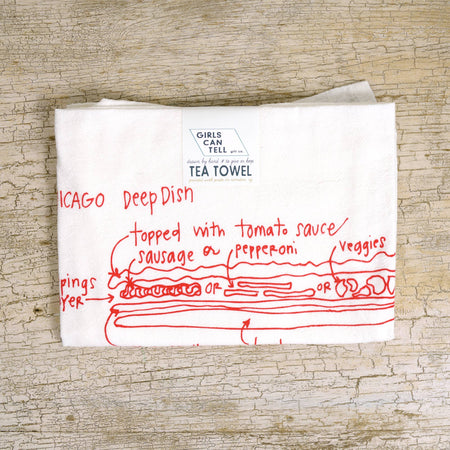 GIRLS
CAN
TELL
drawn by hand & to give or keep
TEA TOWEL
ICAGO Deep Dish
topped with tomato sauce
sausage or pepperoni
veggies
pings
OR
OR
YER